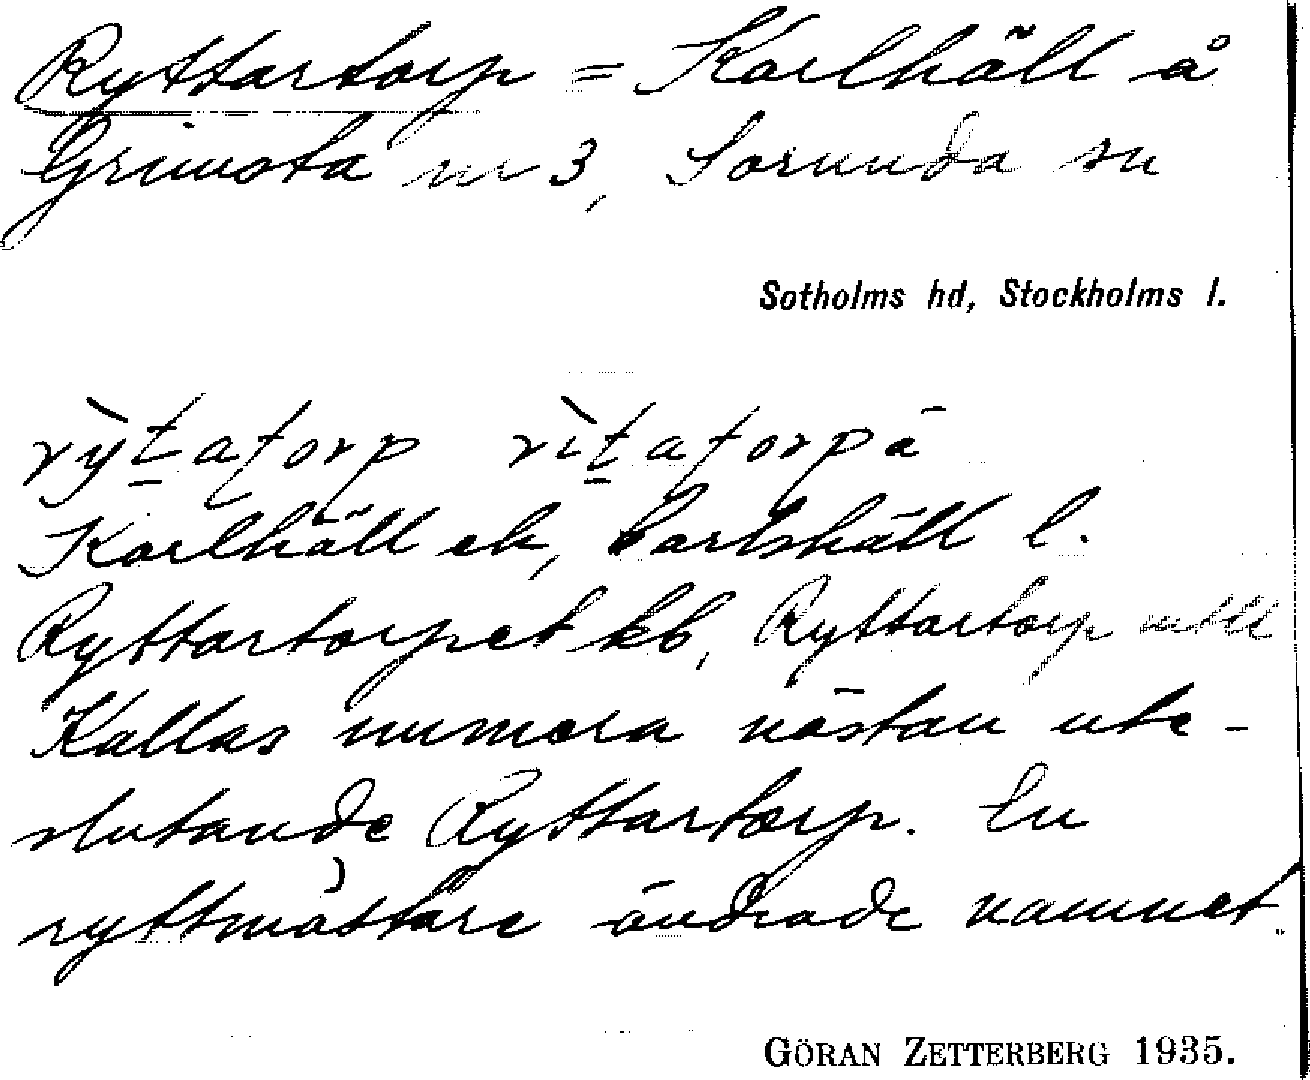 Ryttartorp = Karlhäll å
Grimsta nr 3, Sorunda sn
Sotholms hd, Stockholms l.
rỳtatorp rìtatorpä
Karlhäll ek, Carlshäll l.
Ryttartorpet kb, Ryttartorp mtll
Kallas numera nästan ute-
slutande Ryttartorp. En
ryttmästare ändrade namnet.
GÖRAN ZETTERBERG 1935.